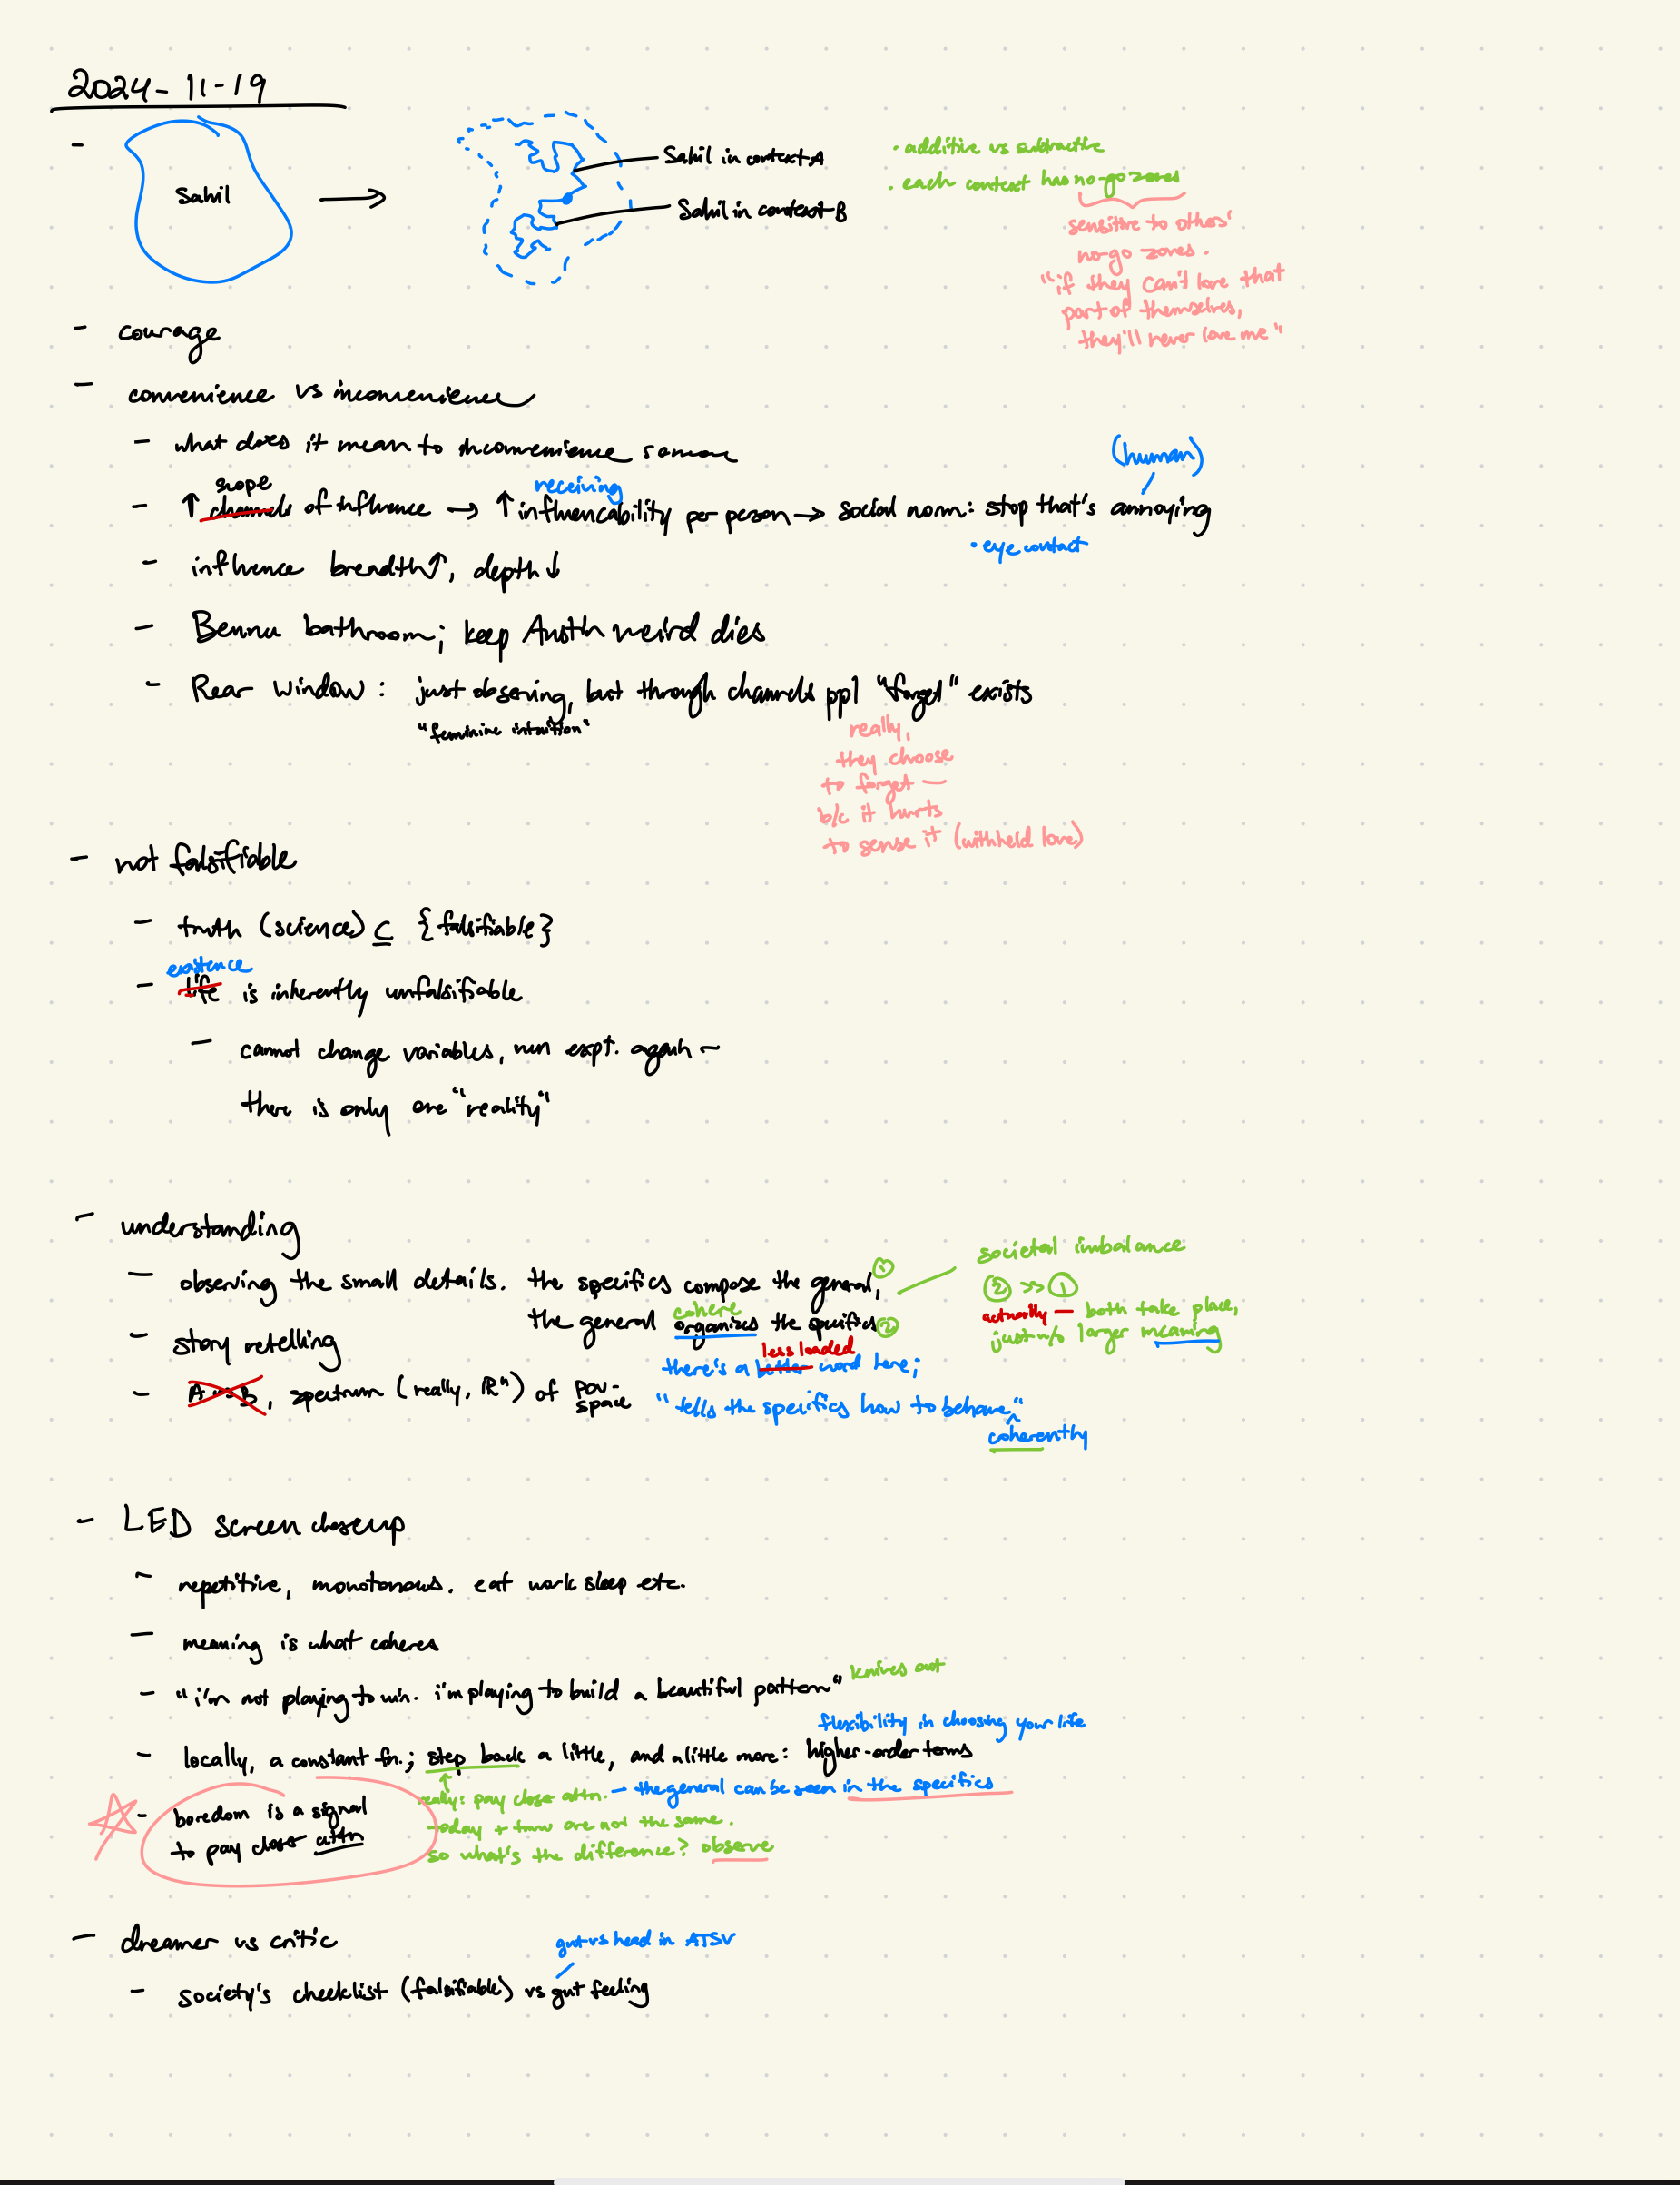 2024-11-19
- Sahil → Sahil in context A
Sahil in context B
• additive vs subtractive
• each context has no-go zones
sensitive to others'
no-go zones.
"if they can't love that
part of themselves,
they'll never love me"
- courage
- convenience vs inconvenience
- what does it mean to inconvenience someone
(human)
scope
receiving
- ↑ channels of influence → ↑ influencability per person → social norm: stop that's annoying
• eye contact
- influence breadth ↑, depth ↓
- Bennu bathroom; keep Austin weird dies
- Rear Window: just observing, but through channels ppl "forget" exists
"feminine intuition"
really,
they choose
to forget —
b/c it hurts
to sense it (withheld love)
- not falsifiable
- truth (science) ⊆ {falsifiable}
existence
- life is inherently unfalsifiable
- cannot change variables, run expt. again –
there is only one "reality"
- understanding
- observing the small details. the specifics compose the general, ①
cohere
the general organizes the specifics ②
societal imbalance
② >> ①
actually — both take place,
just w/o larger meaning
- story retelling
less loaded
there's a better word here;
- A vs B, spectrum (really, ℝⁿ) of pov-
space
"tells the specifics how to behave ^"
coherently
- LED screen closeup
- repetitive, monotonous. eat work sleep etc.
- meaning is what coheres
- "i'm not playing to win. i'm playing to build a beautiful pattern" knives out
flexibility in choosing your life
- locally, a constant fn.; step back a little, and a little more: higher-order terms
↑
really: pay closer attn. — the general can be seen in the specifics
today + tmw are not the same.
so what's the difference? observe
- boredom is a signal
to pay closer attn
- dreamer vs critic
gut vs head in ATSV
- society's checklist (falsifiable) vs gut feeling